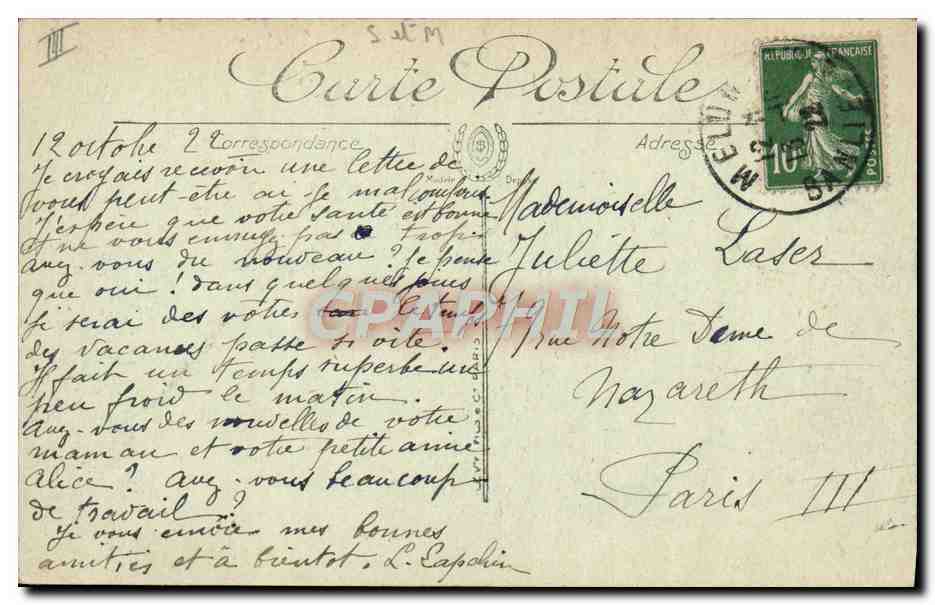 III
S et M
Carte Postale
Correspondance
Adresse
Modèle Déposé
REPUBLIQUE FRANÇAISE
10
POSTES
MELUN
12
22
12 octobre 22
Je croyais recevoir une lettre de
vous peut-être ai-je mal
J'espère que votre santé est bonne
et ne vous ennuyez pas trop.
Avez-vous du nouveau? Je pense
que oui! dans quelques jours
je serai des vôtres le temps
des vacances passe si vite.
Il fait un temps superbe un
peu froid le matin.
Avez-vous des nouvelles de votre
maman et votre petite amie
Alice? Avez-vous beaucoup
de travail?
Je vous envoie mes bonnes
amitiés et à bientôt. L.
Mademoiselle
Juliette Laser
19 rue Notre Dame de
Nazareth
Paris III
CPAPHIL